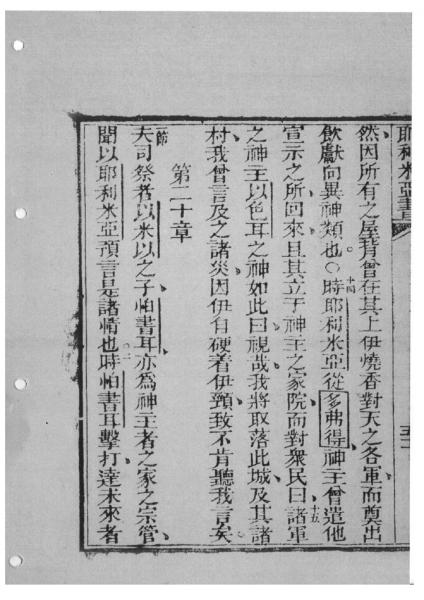 耶利米亞書
然因所有之屋背曾在其上伊燒香對天之各軍而奠出
飲獻向異神類也○十四時耶利米亞從多弗得神主曾遣他
宣示之所回來且其立于神主之家院而對眾民曰十五諸軍
之神主以色耳之神如此曰視哉我將取落此城及其諸
村我曾言及之諸災因伊自硬著伊頸致不肯聽我言矣
第二十章
一節夫司祭者以米以之子怕書耳亦為神主者之家之宗管
聞以耶利米亞預言是諸情也二時怕書耳擊打達未來者